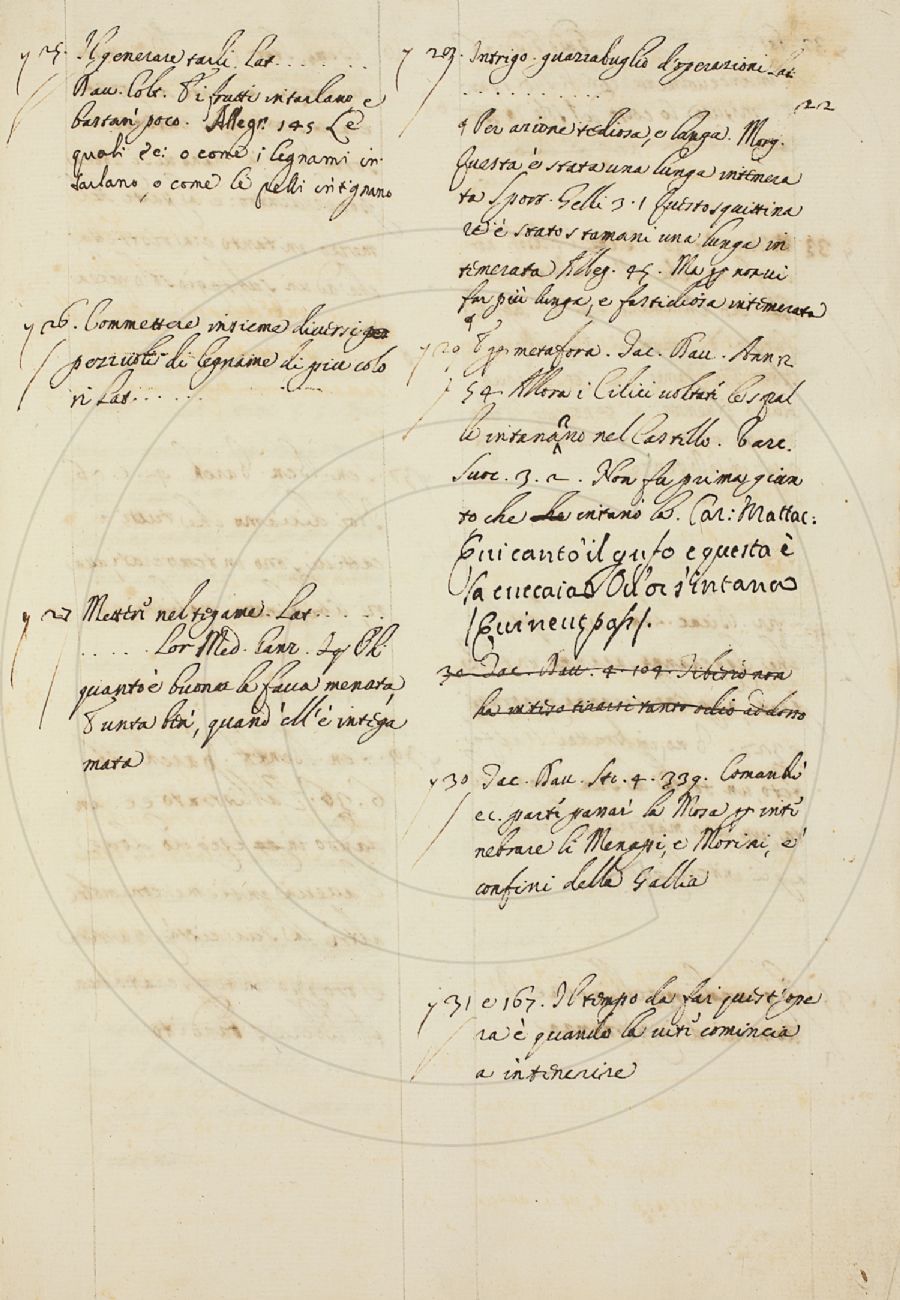 25. Il generare tarli. Lat. . . . . . . .
Dav. Colt. E i frutti intarlano, e
bastan poco. Allegr. 145 Le
quali ec: o come i legnami in
tarlano, o come le pelli intignano
26. Commettere insieme diversi
pezzuoli di legname di più colo
ri Lat. . . . . .
27 Metter nel tegame. Lat. . . . . .
. . . . . Lor Med. Canz.
quant'è buona la fava menata
E unta ben, quand'ell'è intega
mata
29. Intrigo. guazzabuglio d'operazioni. Lat
. . . . . . . . . .
¶ Per azione tediosa, e lunga. Morg. 22
Questa è stata una lunga intemera
ta Sport. Gelli 3. 1 Questo squittina
re è stato stamani una lunga in
temerata Alleg. 45. Ma non vi
fu più lunga, e fastidiosa intemerata
29 E per metafora. Tac. Dav. Ann 12
54. Allora i Cilici voltate le spal
le intanarno nel Castello. Varc.
Suoc. 3. 2. Non fu prima giun
to che intanò là. Car: Mattac:
Qui cantò il gufo e questa è
la cuccaia Ov'or s'intana
30 Tac. Dav. 4. 104. Tiberio non
ha intiso tirarsi tanto odio addosso
30 Tac. Dav. Sto. 4. 339. Comandò
ec. parte passar la Mosa per inte
nebrare li Menapi, e Morini, e
confini della Gallia
31 e 167. Il tempo da far quest'ope
ra è quando la vite comincia
a intenerire